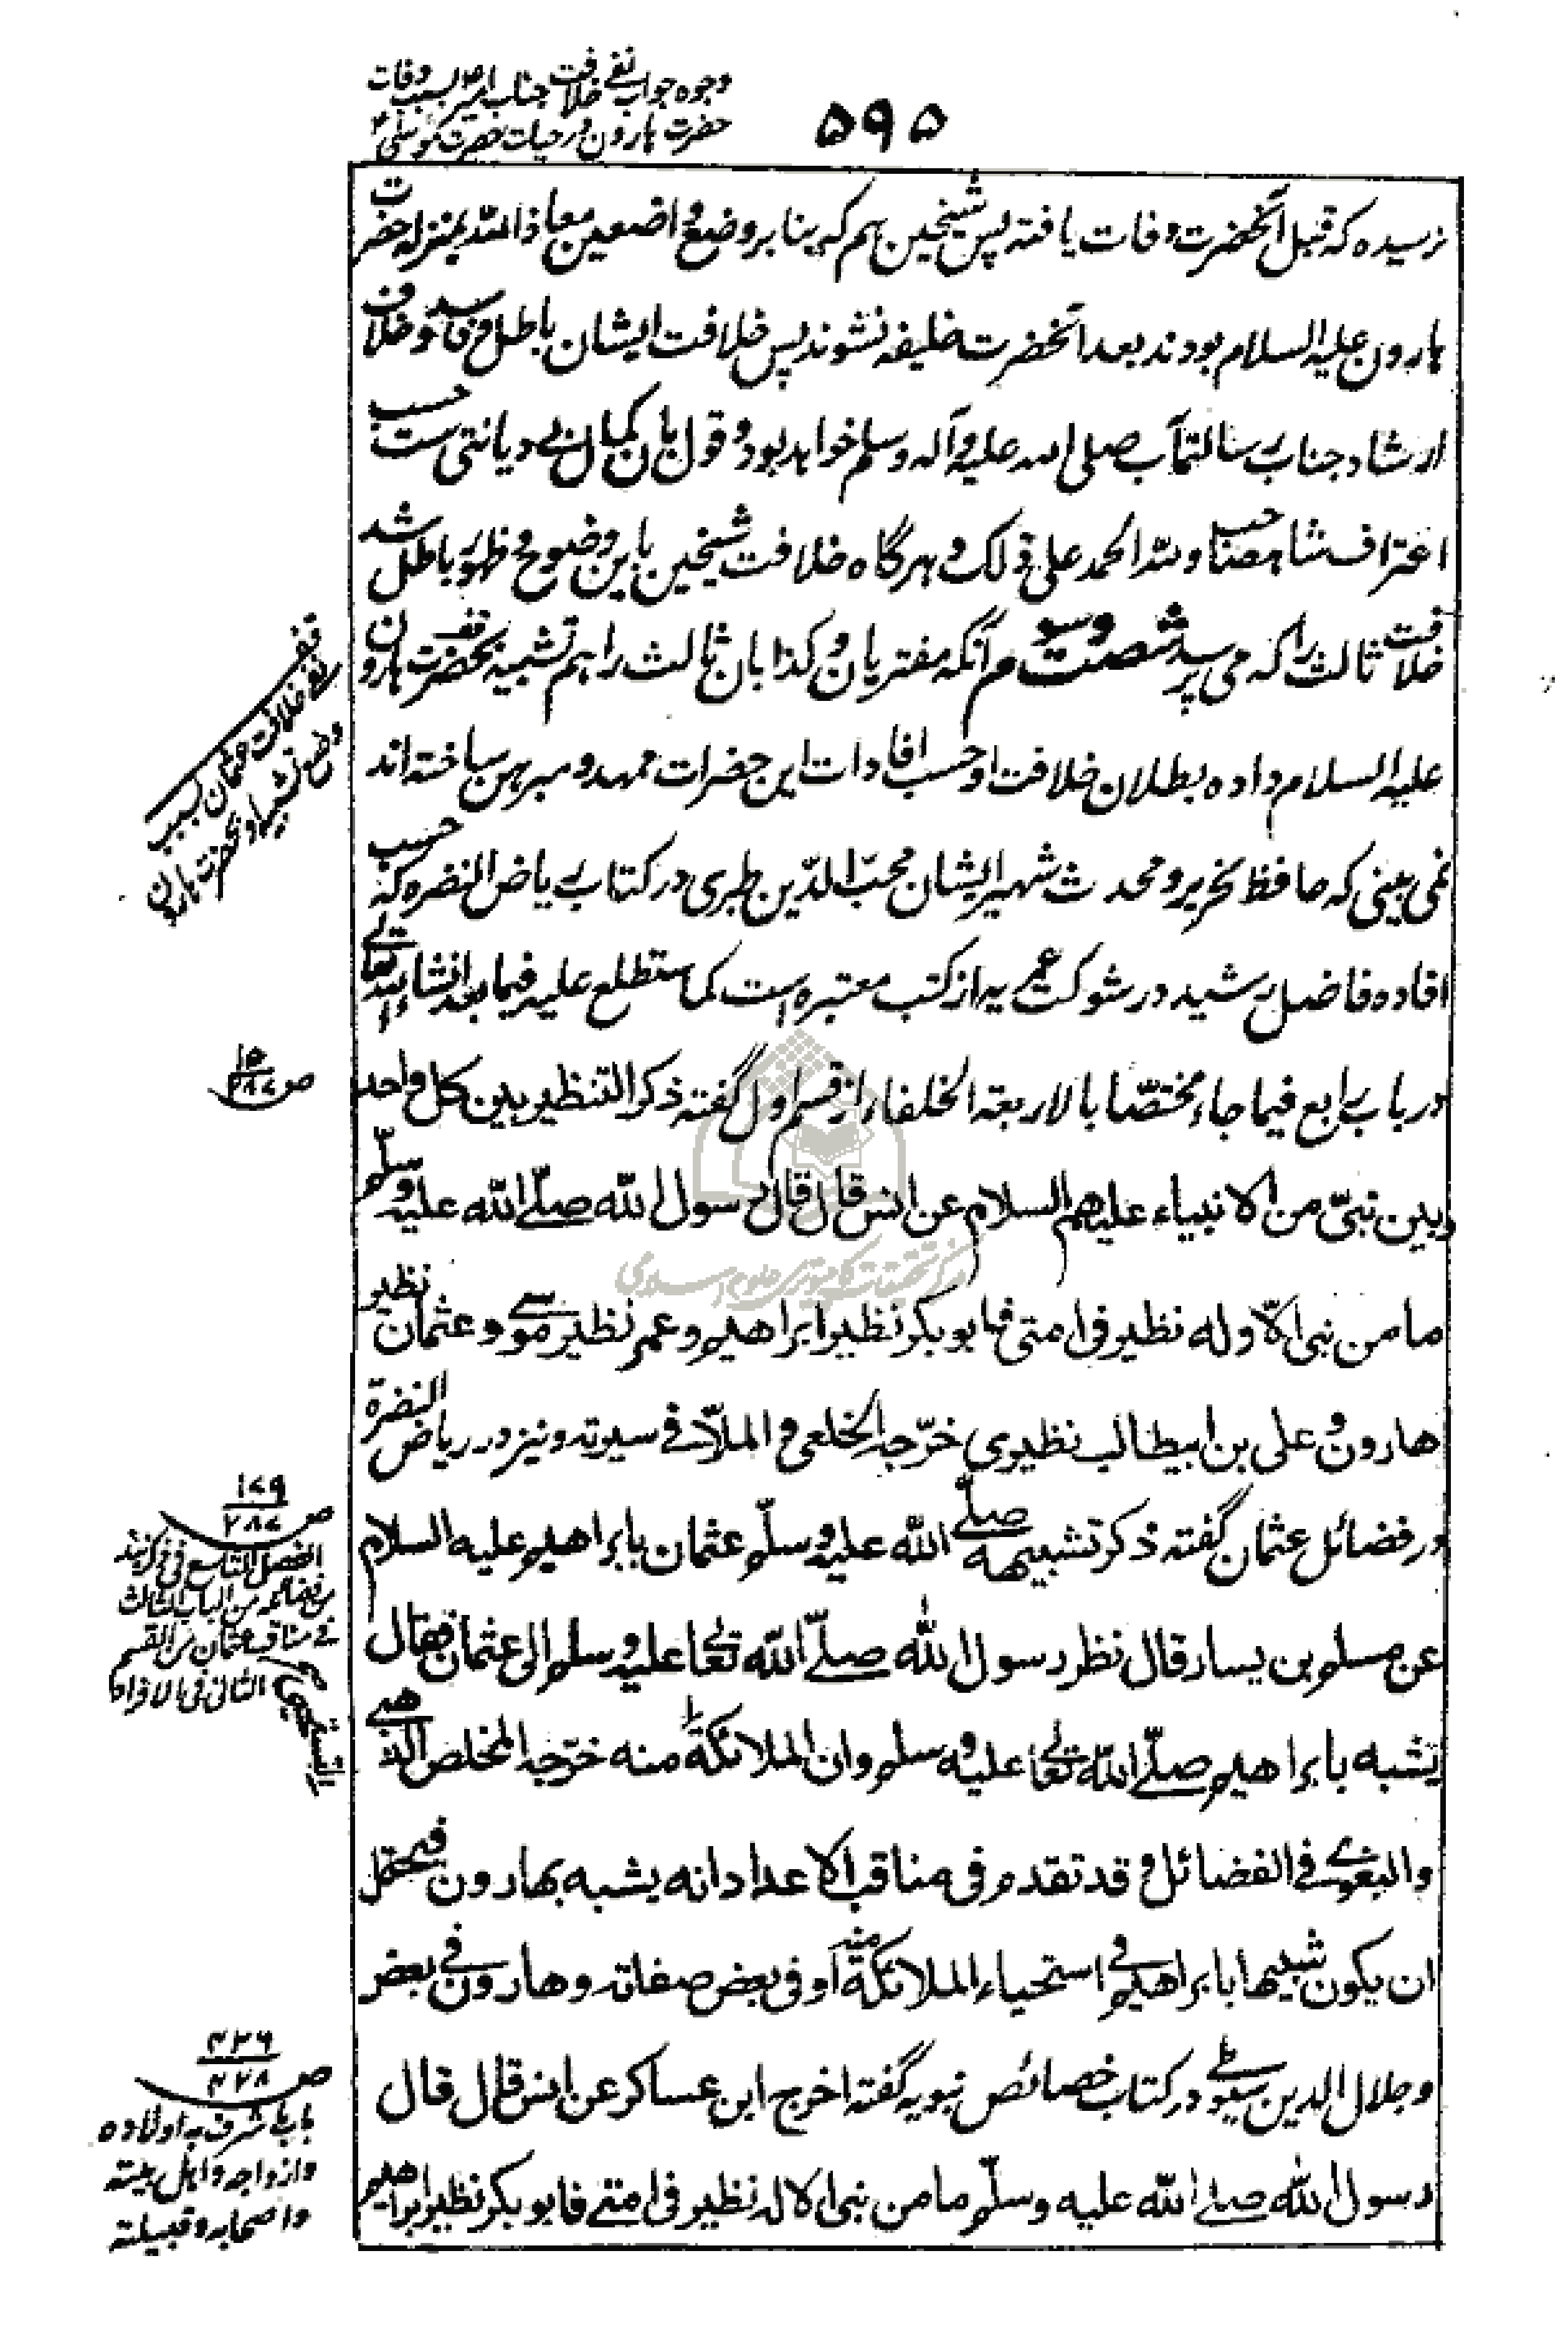 وجوه جواب نفی خلافت جناب امیر بسبب وفات
حضرت هارون در حیات حضرت موسی
۵۹۵
نرسیده که قبل آنحضرت وفات یافته پس شیخین هم که بنابر وضع واضعین معاذ الله بمنزله حضرت
هارون علیه السلام بودند بعد آنحضرت خلیفه نشوند پس خلافت ایشان باطل و فاسد و خلاف
ارشاد جناب رسالتمآب صلی الله علیه و آله وسلم خواهد بود و قول بآن کمال بی دیانتی ست حسب
اعتراف شاهصاحب ولله الحمد علی ذلک و هرگاه خلافت شیخین باین وضوح و ظهور باطل شد
خلافت ثالث را که می پرسد شصت و سوم آنکه مفتریان و کذابان ثالث را هم تشبیه بحضرت هارون
علیه السلام داده بطلان خلافت او حسب افادات این حضرات ممهد و مبرهن ساخته اند
نمی بینی که حافظ نحریر و محدث شهیر ایشان محب الدین طبری در کتاب ریاض النضره که حسب
افاده فاضل رشید در شوکت عمریه از کتب معتبره است کما ستطلع علیه فیما بعد انشاء الله تعالی
در باب رابع فیما جاء مختصّا بالاربعة الخلفاء از قسم اول گفته ذکر التنظیر بین کل واحد
وبین نبیّ من الانبیاء علیهم السلام عن انس قال قال رسول الله صلّی الله علیه وسلّم
ما من نبی الّا وله نظیر فی امتی فابو بکر نظیر ابراهیم و عمر نظیر موسی و عثمان نظیر
هارون و علی بن ابیطالب نظیری خرّجه الخلعی و الملّا فی سیرته و نیز در ریاض النضرة
در فضائل عثمان گفته ذکر تشبیهه صلّی الله علیه وسلّم عثمان بابراهیم علیه السلام
عن مسلم بن یسار قال نظر رسول الله صلّی الله تعالی علیه وسلم الی عثمان فقال
یشبه بابراهیم صلّی الله تعالی علیه وسلم وان الملائکة منه خرّجه المخلص الذهبی
والبغوی فی الفضائل و قد تقدم فی مناقب الاعداد انه یشبه بهارون فیحتمل
ان یکون شبیها بابراهیم فی استحیاء الملائکة منه او فی بعض صفاته و هارون فی بعض
و جلال الدین سیوطی در کتاب خصائص نبویه گفته اخرج ابن عساکر عن انس قال قال
رسول الله صلی الله علیه وسلّم ما من نبی الا له نظیر فی امتی فابو بکر نظیر ابراهیم
نفی خلافت عثمان بسبب
وضع تشبیه او بحضرت هارون
ص ۱۵
ص ۱۷۹
۲۸۷
الفصل التاسع فی ذکر نبذ
من فضائله من الباب الثالث
فی مناقب عثمان من القسم
الثانی فی الافراد
ص ۴۲۶
۴۷۸
باب شرف به اولاده
وازواجه واهل بیته
واصحابه وقبیلته